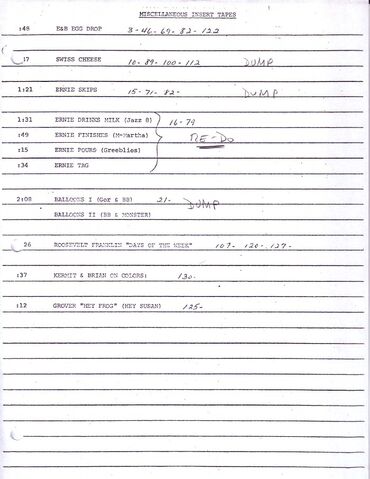 MISCELLANEOUS INSERT TAPES
:48 E&B EGG DROP 3-46-69-82-122
:17 SWISS CHEESE 10-89-100-112 DUMP
1:21 ERNIE SKIPS 15-71-82- DUMP
1:31 ERNIE DRINKS MILK (Jazz 8) 16-79
:49 ERNIE FINISHES (McMartha) RE-DO
:15 ERNIE POURS (Greeblies)
:34 ERNIE TAG
2:08 BALLOONS I (Gor & BB) 21- DUMP
BALLOONS II (BB & MONSTER)
26 ROOSEVELT FRANKLIN "DAYS OF THE WEEK" 107-120-127-
:37 KERMIT & BRIAN ON COLORS: 130-
:12 GROVER "HEY FROG" (HEY SUSAN) 125-